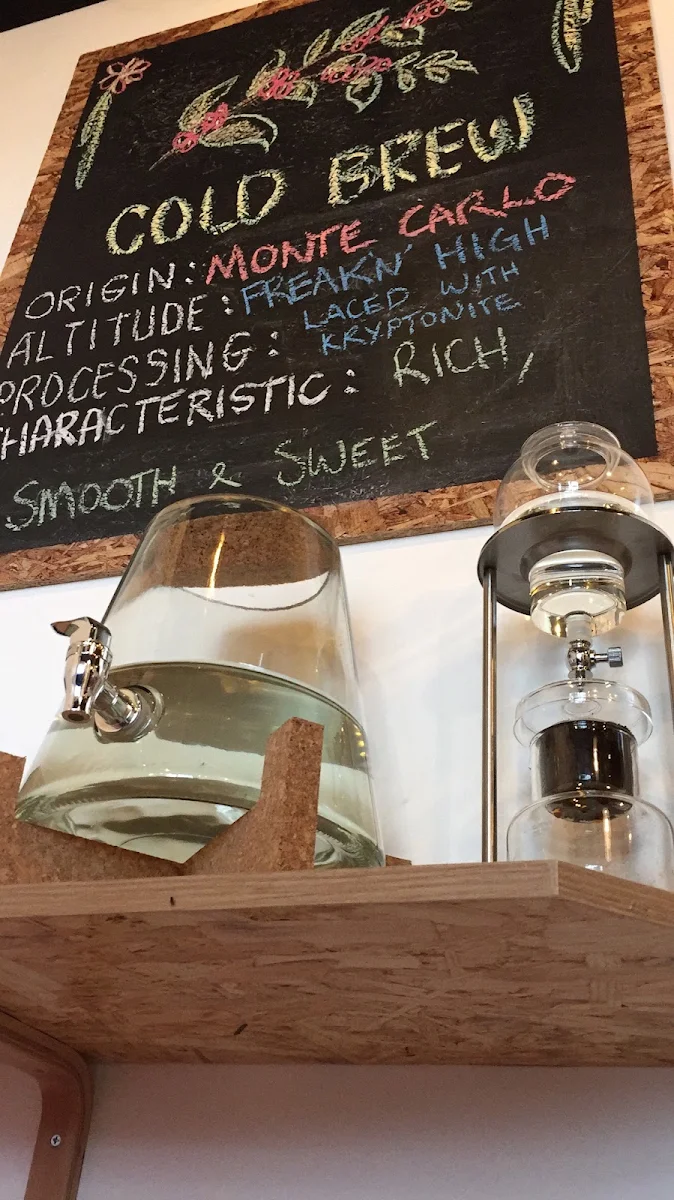 COLD BREW
ORIGIN: MONTE CARLO
ALTITUDE: FREAKN' HIGH
PROCESSING: LACED WITH
KRYPTONITE
CHARACTERISTIC: RICH,
SMOOTH & SWEET